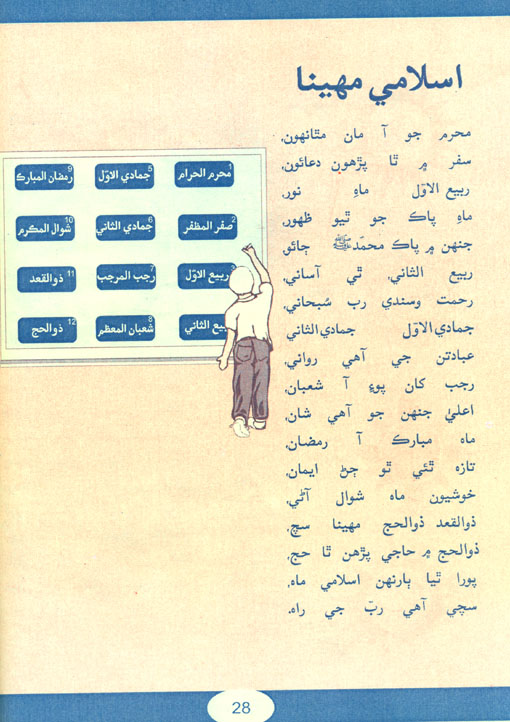 اسلامي مهينا
محرم جو آ مان مٿانهون،
سفر ۾ ٿا پڙهون دعائون،
ربيع الاوّل ماهِ نور،
ماهِ پاڪ جو ٿيو ظهور،
جنهن ۾ پاڪ محمّد ﷺ ڄائو
ربيع الثاني، ٿي آساني،
رحمت وسندي رب سُبحاني،
جمادي الاوّل جمادي الثاني
عبادتن جي آهي رواني،
رجب کان پوءِ آ شعبان،
اعليٰ جنهن جو آهي شان،
ماه مبارڪ آ رمضان،
تازه ٿئي ٿو ڄڻ ايمان،
خوشيون ماه شوال آڻي،
ذوالقعد ذوالحج مهينا سچ،
ذوالحج ۾ حاجي پڙهن ٿا حج،
پورا ٿيا ٻارنهن اسلامي ماه،
سچي آهي ربّ جي راه.
1 محرم الحرام
2 صفر المظفر
ربيع الاوّل
ربيع الثاني
5 جمادي الاوّل
6 جمادي الثاني
7 رجب المرجب
8 شعبان المعظم
9 رمضان المبارڪ
10 شوال المڪرم
11 ذوالقعد
12 ذوالحج
28